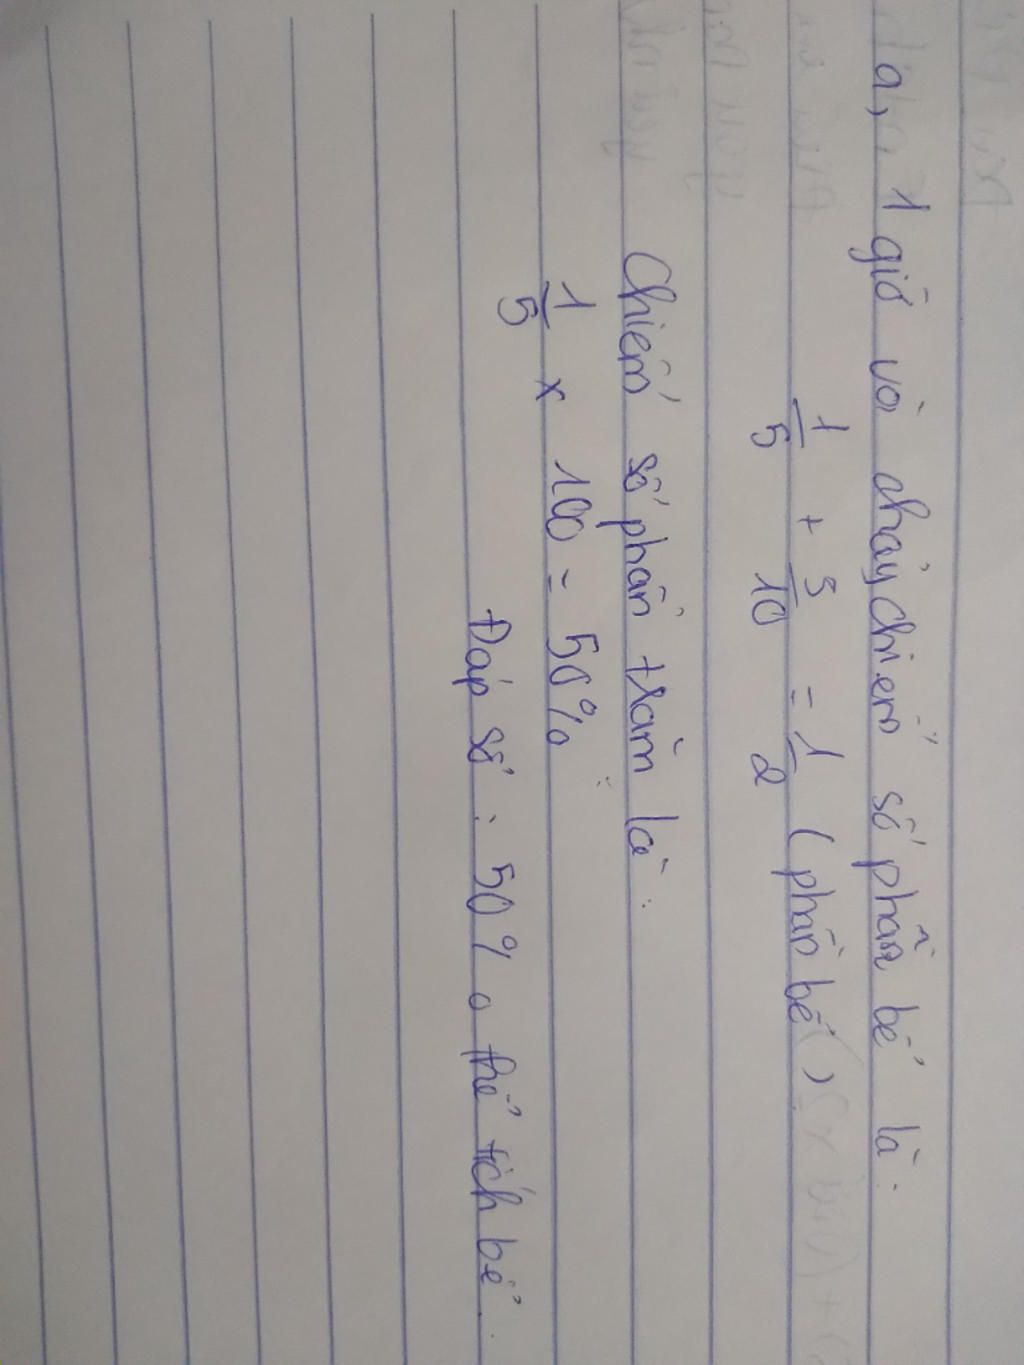 a, 1 giờ vòi chảy chiếm số phần bể là:
1/5 + 3/10 = 1/2 (phần bể)
Chiếm số phần trăm là:
1/5 x 100 = 50%
Đáp số: 50% thể tích bể.